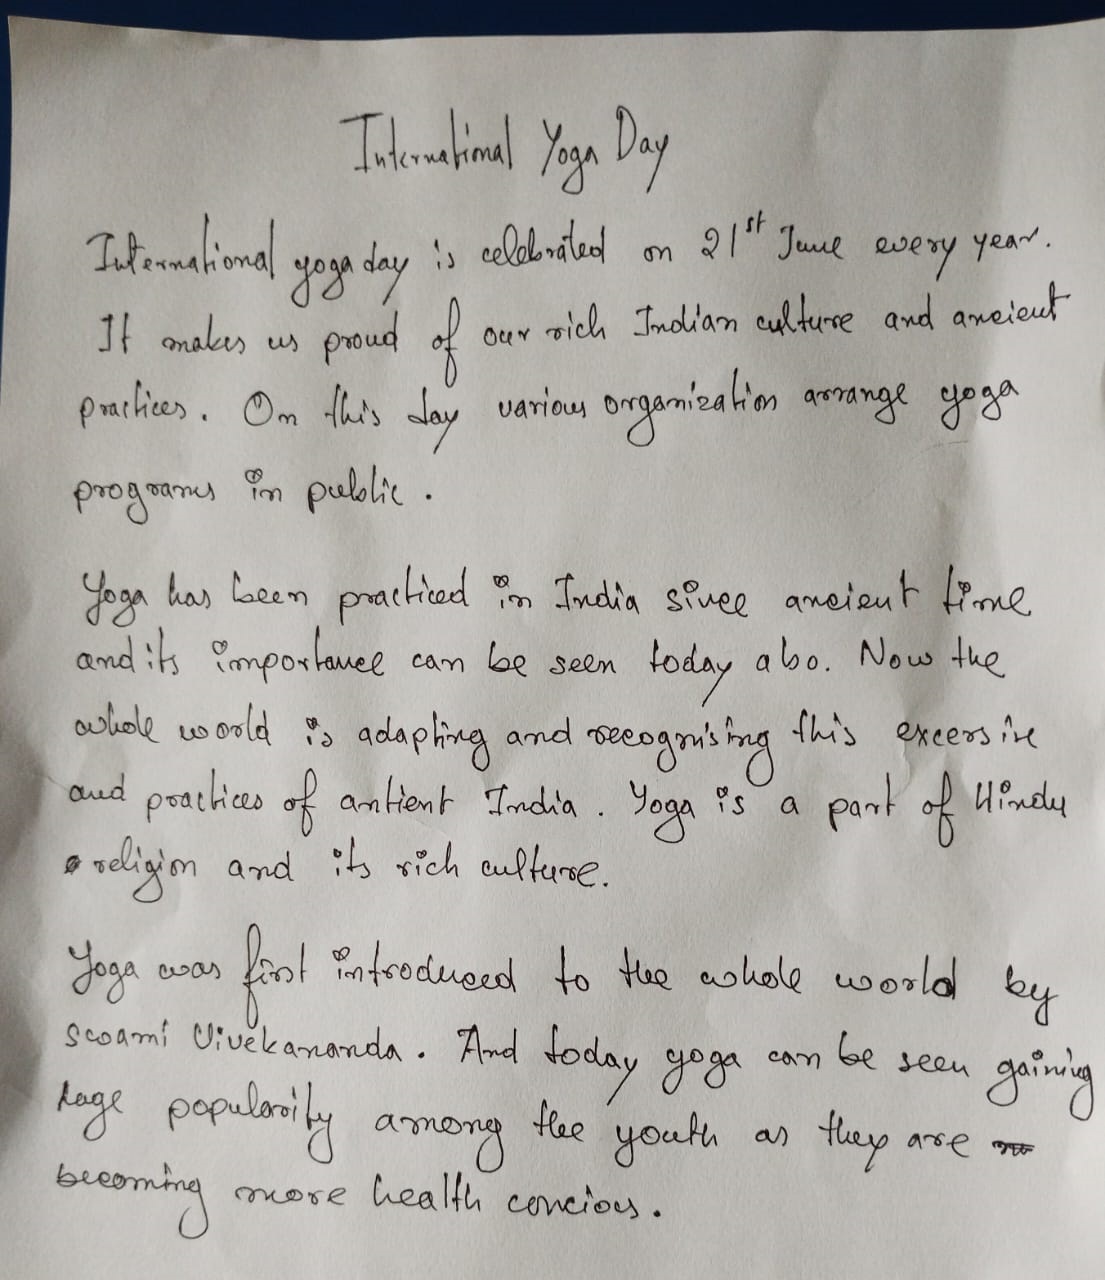 International Yoga Day
International yoga day is celebrated on 21st June every year.
It makes us proud of our rich Indian culture and ancient
practices. On this day various organization arrange yoga
programs in public.
Yoga has been practiced in India since ancient time
and its importance can be seen today also. Now the
whole world is adapting and recognising this excersise
and practices of antient India. Yoga is a part of Hindu
religion and its rich culture.
Yoga was first introduced to the whole world by
Swami Vivekananda. And today yoga can be seen gaining
huge popularity among the youth as they are
becoming more health concious.